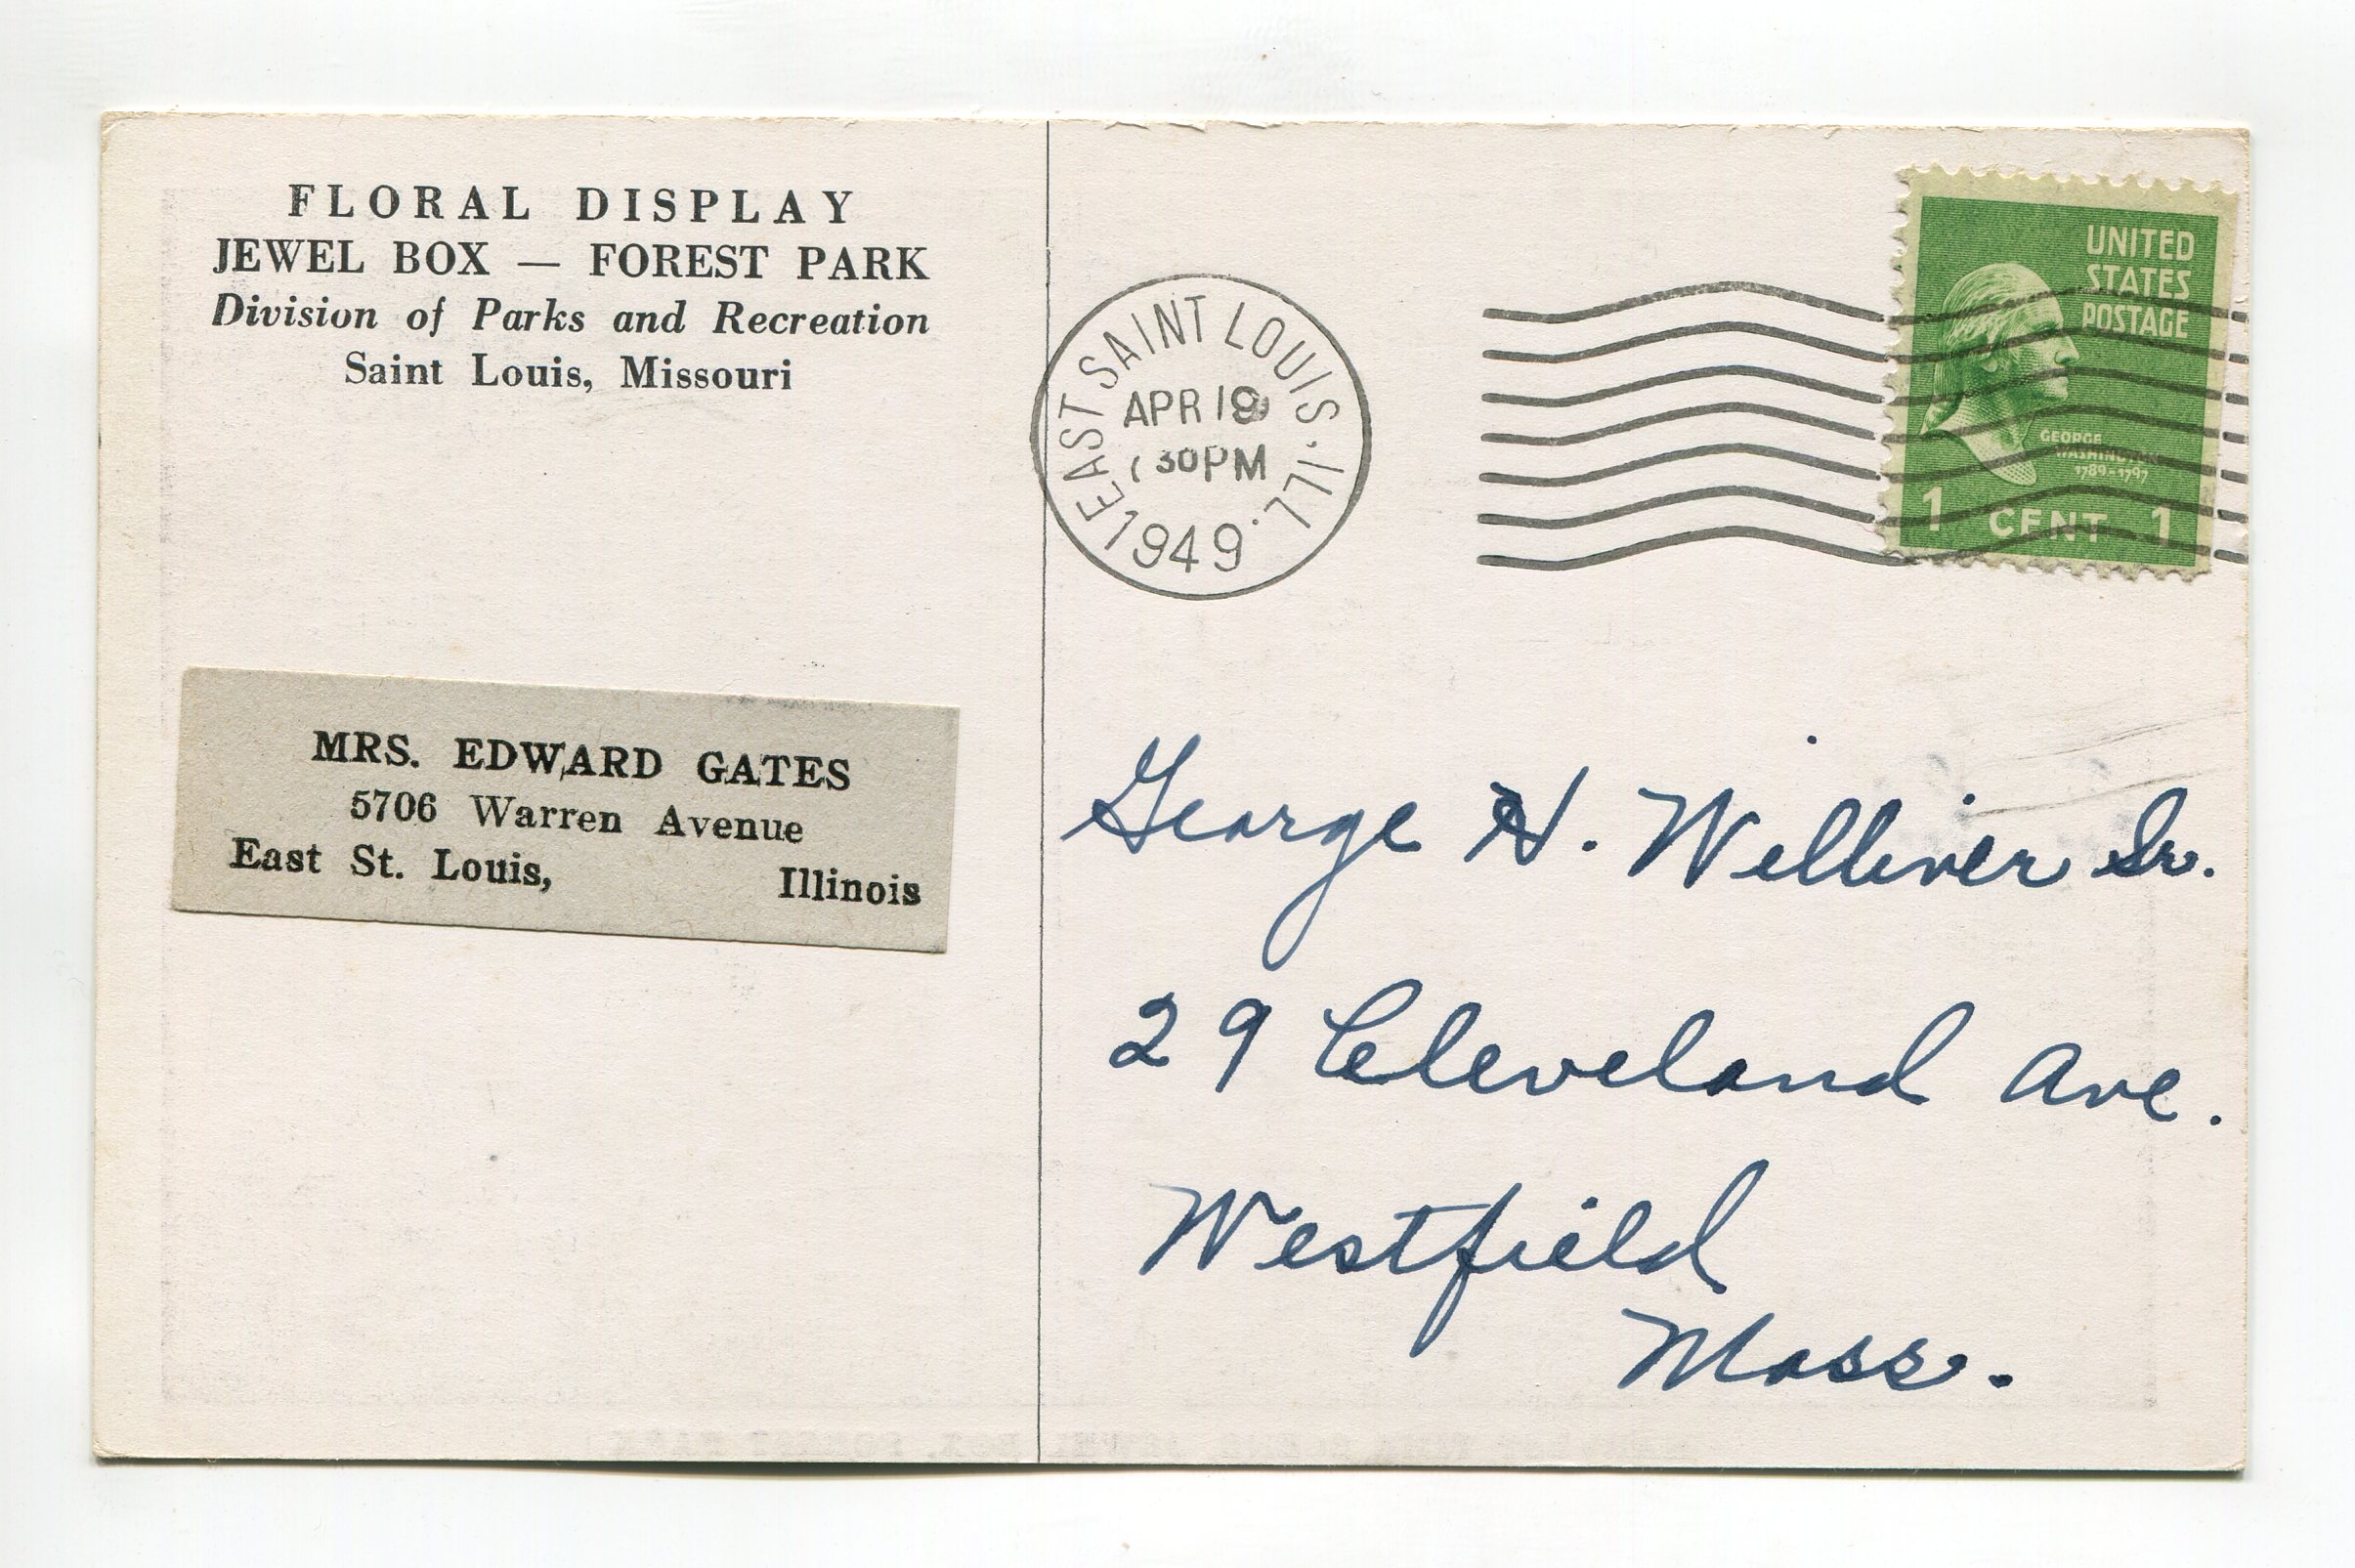 FLORAL DISPLAY
JEWEL BOX — FOREST PARK
Division of Parks and Recreation
Saint Louis, Missouri
MRS. EDWARD GATES
5706 Warren Avenue
East St. Louis, Illinois
EAST SAINT LOUIS, ILL.
APR 19
30 PM
1949
UNITED
STATES
POSTAGE
GEORGE
WASHINGTON
1789-1797
1 CENT 1
George H. Welliver Sr.
29 Cleveland Ave.
Westfield
Mass.